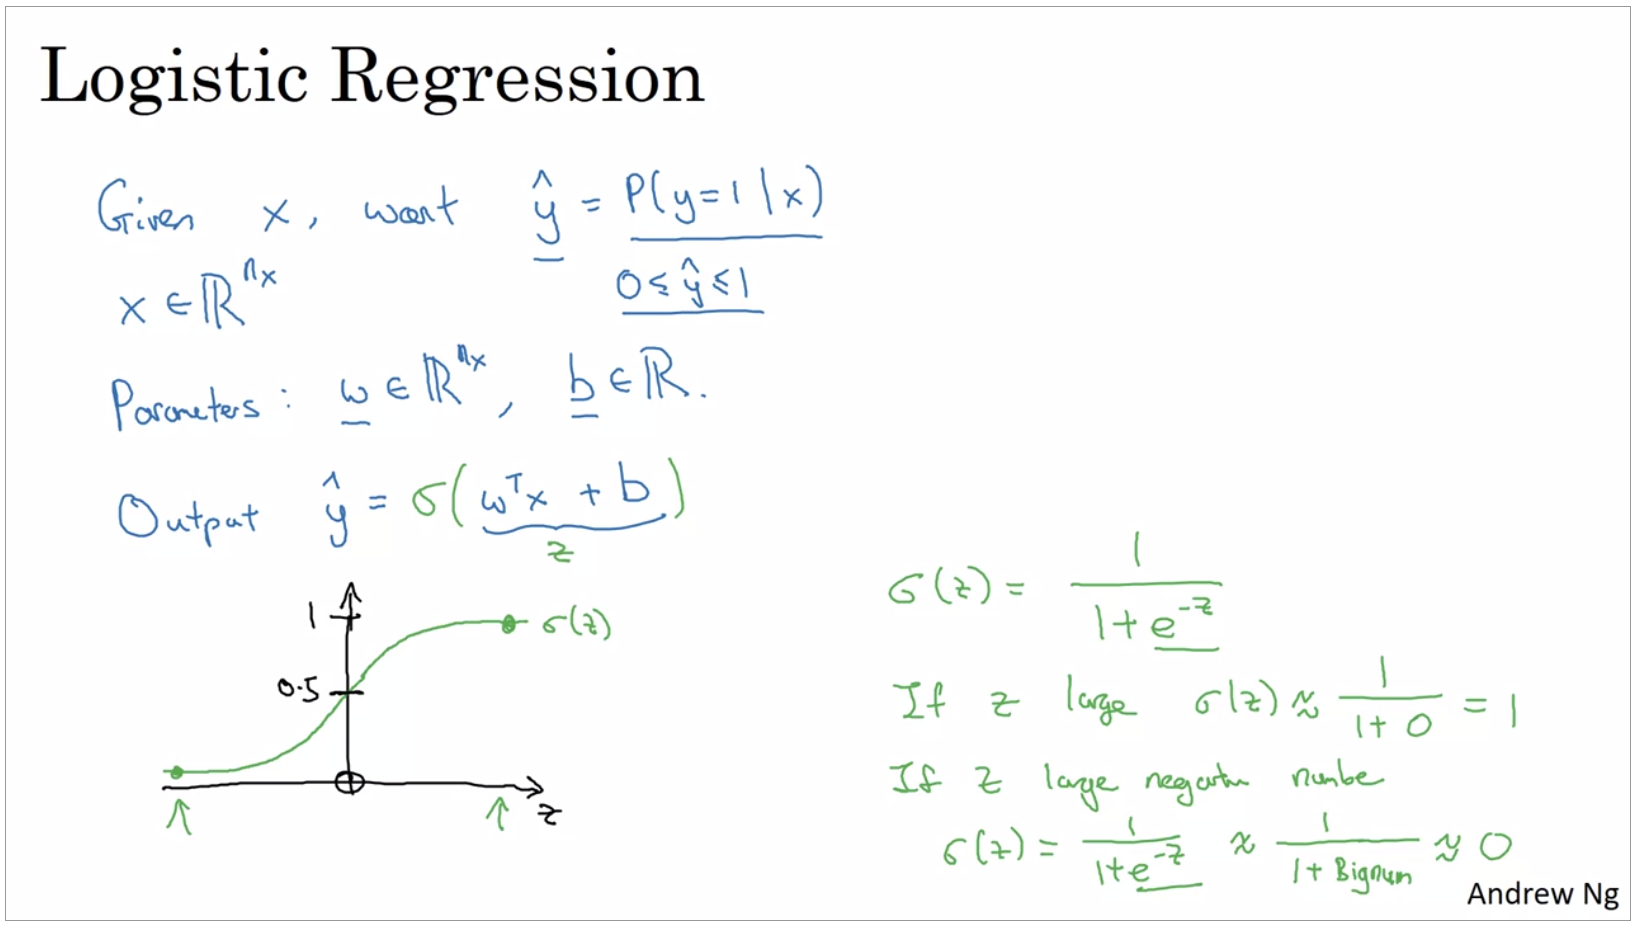 Logistic Regression
Given x, want ŷ = P(y=1|x)
0 ≤ ŷ ≤ 1
x ∈ ℝⁿˣ
Parameters: w ∈ ℝⁿˣ, b ∈ ℝ.
Output ŷ = σ(wᵀx + b)
z
1
σ(z)
0.5
z
σ(z) = 1 / (1 + e^(-z))
If z large σ(z) ≈ 1 / (1 + 0) = 1
If z large negative number
σ(z) = 1 / (1 + e^(-z)) ≈ 1 / (1 + Bignum) ≈ 0
Andrew Ng